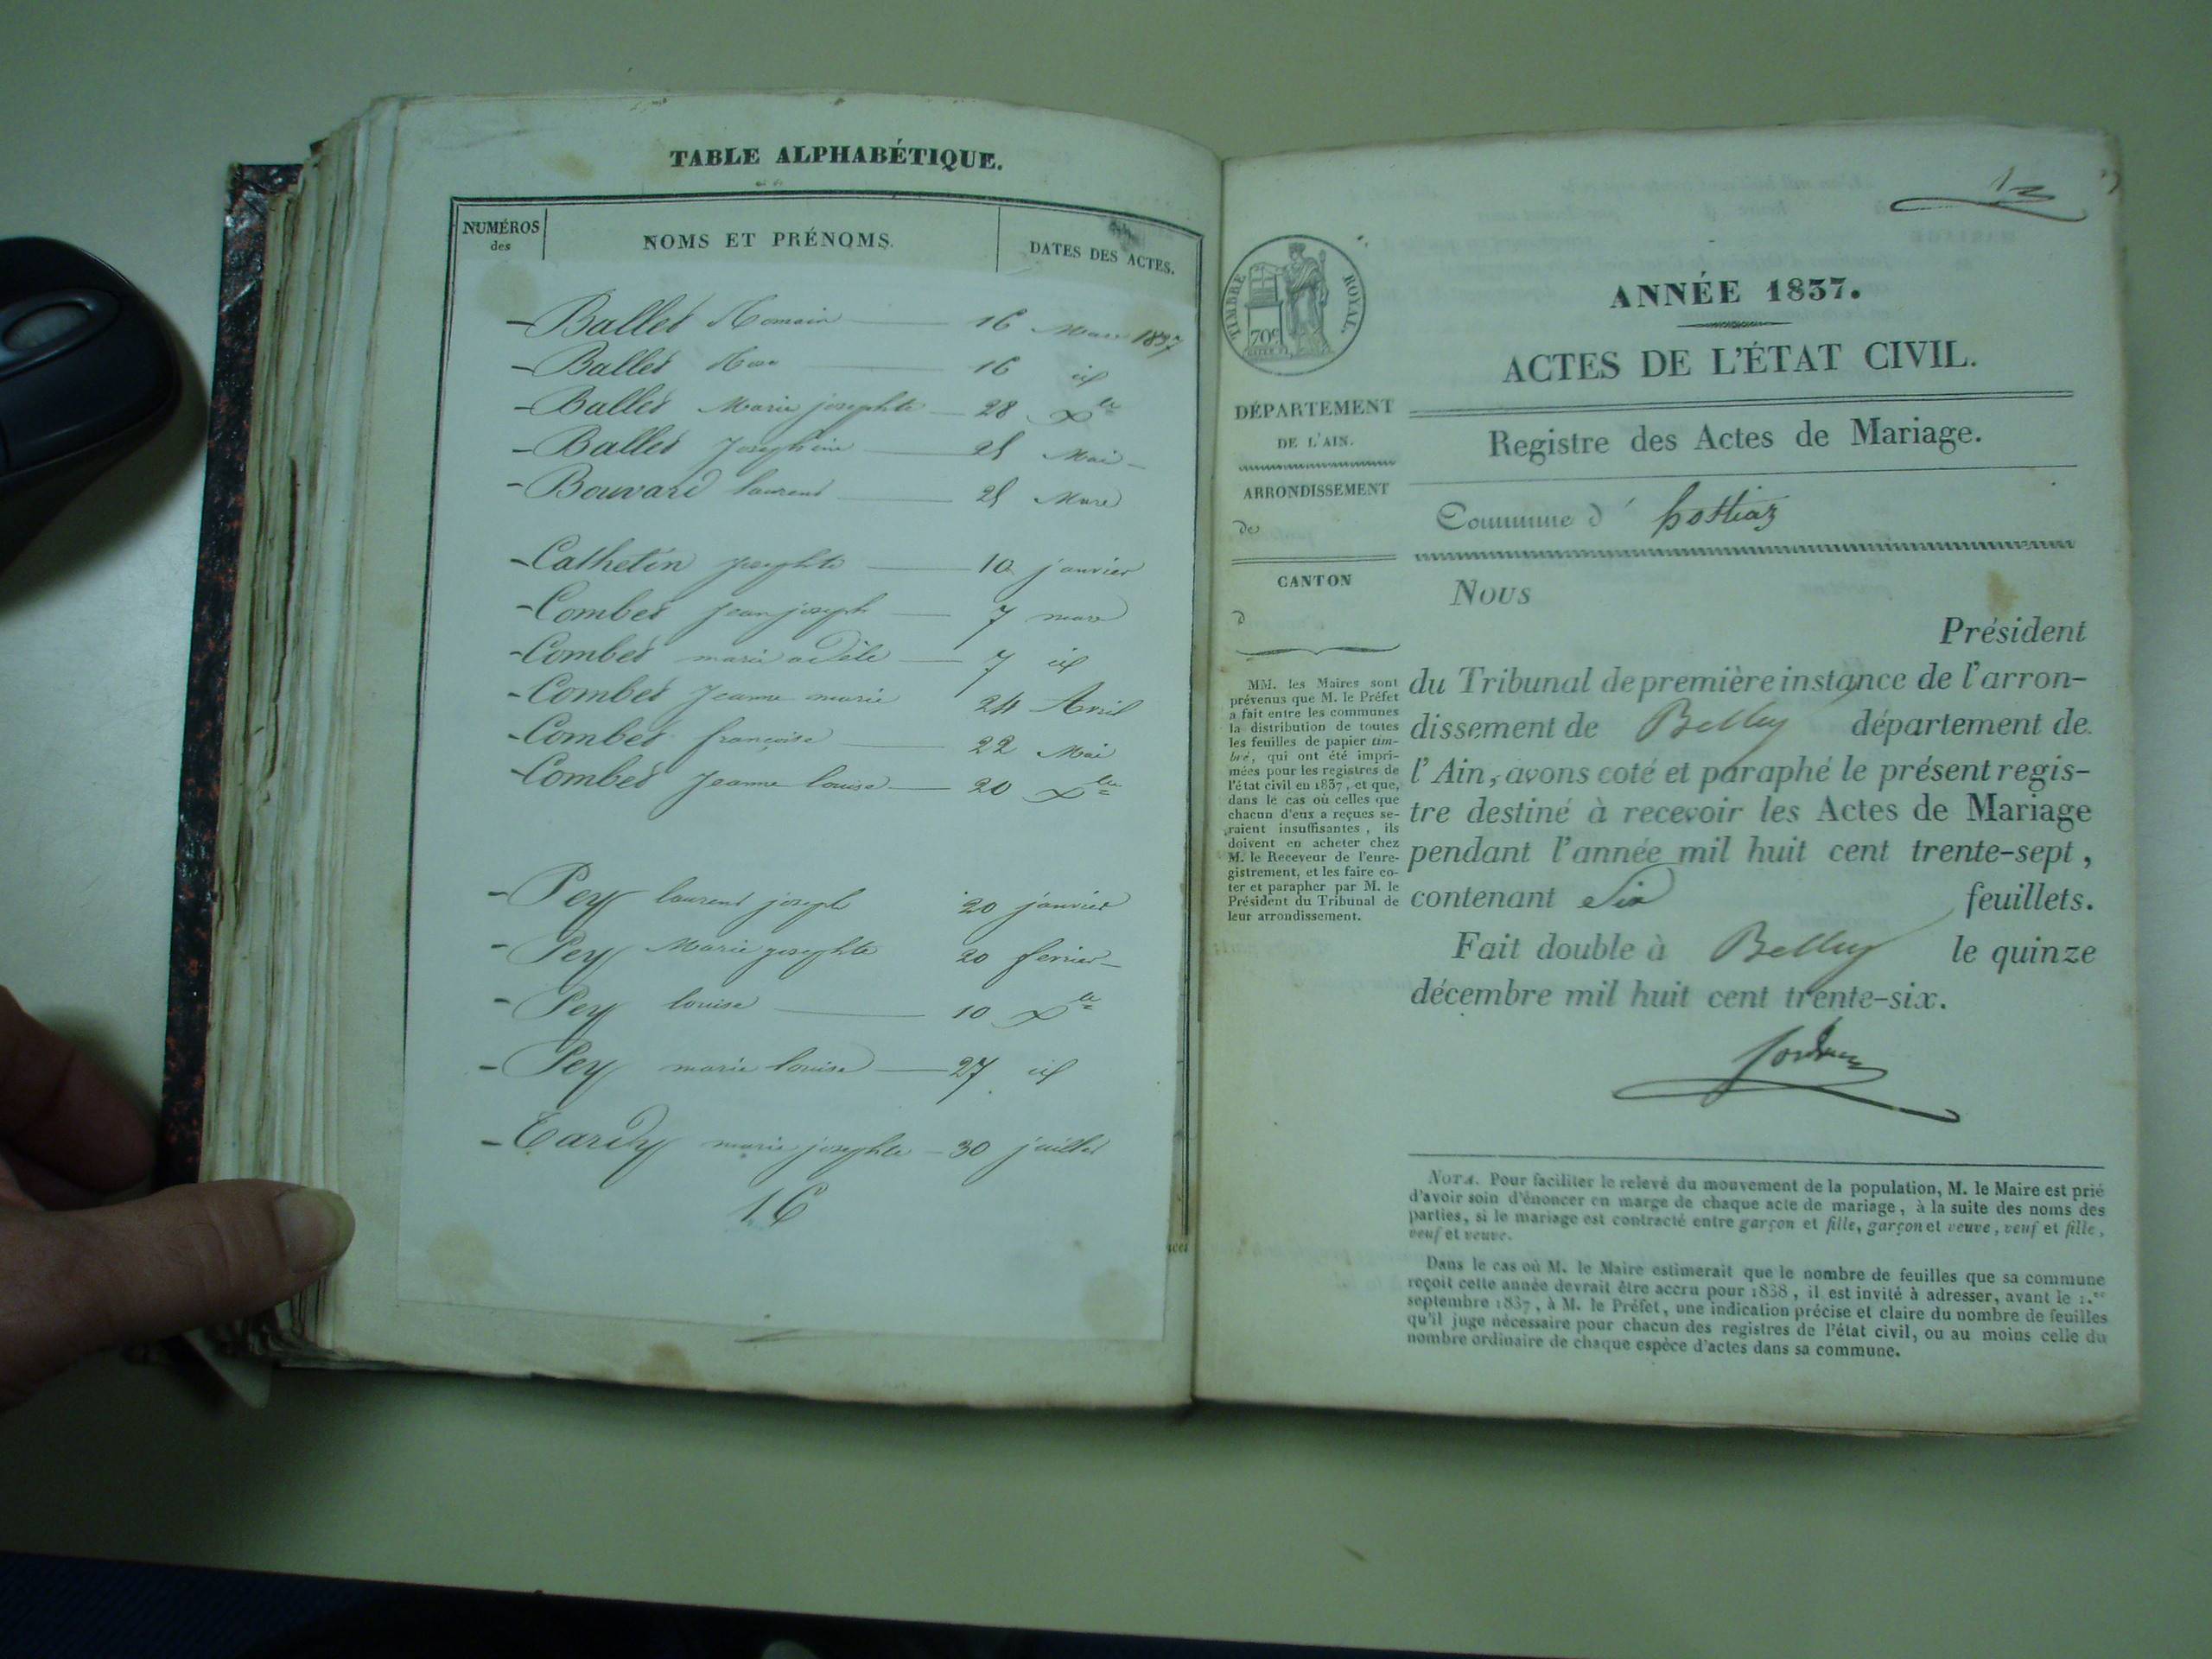 TABLE ALPHABÉTIQUE.
NUMÉROS des
NOMS ET PRÉNOMS.
DATES DES ACTES.
- Ballet Romain — 16 Mars 1837
- Ballet — 16 id
- Ballet Marie josephte — 28 Xbre
- Ballet Josephine — 25 Mai -
- Bouvard laurent — 25 Mars
- Cathelin josephte — 10 janvier
- Combet jean joseph — 7 mars
- Combet marie adèle — 7 id
- Combet Jeanne marie 24 Avril
- Combet françoise — 22 Mai
- Combet Jeanne louise — 20 Xbre
- Pey laurent joseph 20 janvier
- Pey Marie josephte 20 fevrier -
- Pey louise — 10 Xbre
- Pey marie louise — 27 id
- Tardy marie josephte - 30 juillet
16
TIMBRE ROYAL.
70c
ANNÉE 1837.
ACTES DE L'ÉTAT CIVIL.
DÉPARTEMENT
DE L'AIN.
ARRONDISSEMENT
de
CANTON
d
MM. les Maires sont
prévenus que M. le Préfet
a fait entre les communes
la distribution de toutes
les feuilles de papier tim-
bré, qui ont été impri-
mées pour les registres de
l'état civil en 1837, et que,
dans le cas où celles que
chacun d'eux a reçues se-
raient insuffisantes, ils
doivent en acheter chez
M. le Receveur de l'enre-
gistrement, et les faire co-
ter et parapher par M. le
Président du Tribunal de
leur arrondissement.
Registre des Actes de Mariage.
Commune d' hottiaz
Nous
Président
du Tribunal de première instance de l'arron-
dissement de Belley département de
l'Ain, avons coté et paraphé le présent regis-
tre destiné à recevoir les Actes de Mariage
pendant l'année mil huit cent trente-sept,
contenant Six feuillets.
Fait double à Belley le quinze
décembre mil huit cent trente-six.
NOTA. Pour faciliter le relevé du mouvement de la population, M. le Maire est prié
d'avoir soin d'énoncer en marge de chaque acte de mariage, à la suite des noms des
parties, si le mariage est contracté entre garçon et fille, garçon et veuve, veuf et fille,
veuf et veuve.
Dans le cas où M. le Maire estimerait que le nombre de feuilles que sa commune
reçoit cette année devrait être accru pour 1838, il est invité à adresser, avant le 1.er
septembre 1837, à M. le Préfet, une indication précise et claire du nombre de feuilles
qu'il juge nécessaire pour chacun des registres de l'état civil, ou au moins celle du
nombre ordinaire de chaque espèce d'actes dans sa commune.